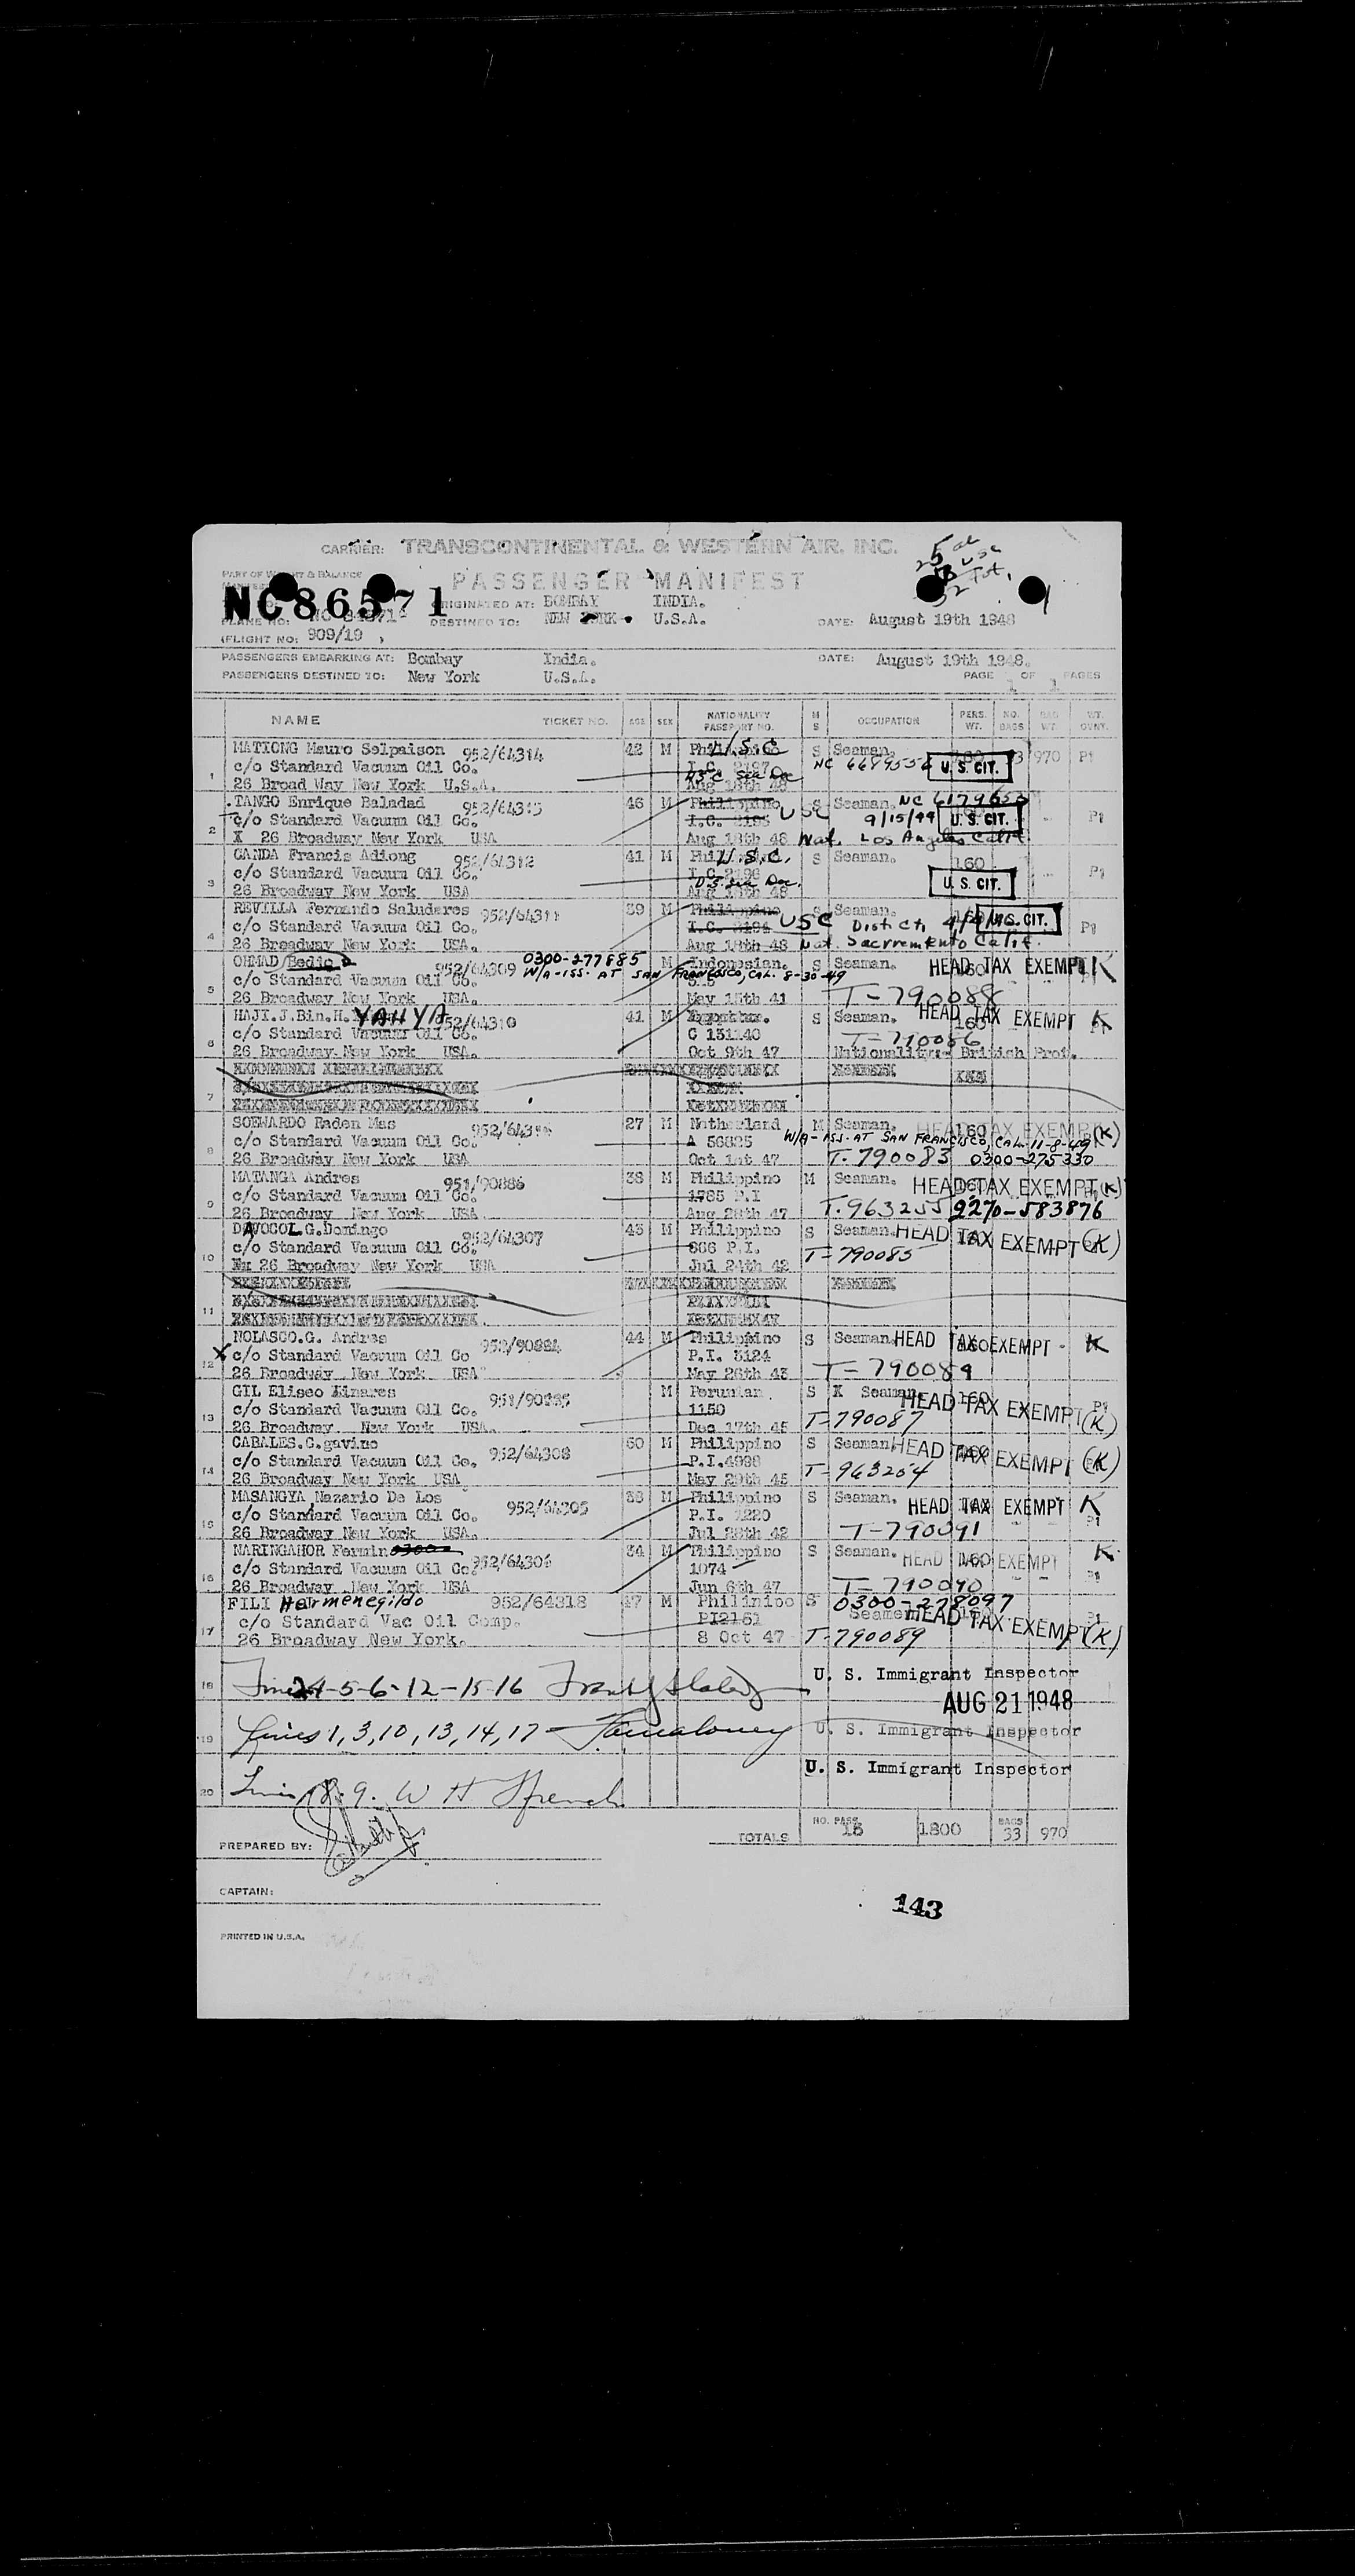 CARRIER: TRANSCONTINENTAL & WESTERN AIR, INC.
PASSENGER MANIFEST
NC86571
ORIGINATED AT: BOMBAY INDIA.
DESTINED TO: NEW YORK. U.S.A. DATE: August 19th 1948
(FLIGHT NO: 909/19 )
PASSENGERS EMBARKING AT: Bombay India. DATE: August 19th 1948.
PASSENGERS DESTINED TO: New York U.S.A. PAGE 1 OF 1 PAGES
NAME TICKET NO. AGE SEX NATIONALITY PASSPORT NO. M S OCCUPATION PERS. WT. NO. BAGS BAG WT. WT. OVNT.
MATIONG Mauro Selpaison 952/64314 42 M U.S.C S Seaman. 970
c/o Standard Vacuum Oil Co. I.C. 2197 NC U.S. CIT.
1 26 Broad Way New York U.S.A. Aug 18th 48
TANGO Enrique Baladad 46 M Philippino USC S Seaman. NC
c/o Standard Vacuum Oil Co. U.S. CIT.
2 X 26 Broadway New York USA Aug 18th 48 Nat. Los Angeles Calif.
CANDA Francis Adiong 952/64312 41 M U.S.C. S Seaman. 160
c/o Standard Vacuum Oil Co. U.S. CIT.
3 26 Broadway New York USA
REVILLA Fernando Saludares 952/64311 39 M Philippino USC S Seaman. U.S. CIT.
c/o Standard Vacuum Oil Co. I.C. 2194
4 26 Broadway New York USA. Aug 18th 48 Nat. Sacremento Calif.
OHMAD Bedic 952/64309 0300-277885 M Indonesian. S Seaman. HEAD TAX EXEMPT K
c/o Standard Vacuum Oil Co. W/A-ISS. AT SAN FRANCISCO, CAL. 8-30-49
5 26 Broadway New York USA. May 15th 41 T-790088
HAJI.J.Bin.H. YAHYA 952/64310 41 M S Seaman. HEAD TAX EXEMPT K
c/o Standard Vacuum Oil Co. C 131140 T-790086
6 26 Broadway New York USA. Oct 9th 47 Nationality:- British Prot.
7
SOEWARDO Raden Mas 27 M Netherland M Seaman. HEAD TAX EXEMPT (K)
c/o Standard Vacuum Oil Co. A 56625 W/A-ISS. AT SAN FRANCISCO, CAL. 11-8-49
8 26 Broadway New York USA Oct 1st 47 T-790083 0300-275330
MATANGA Andres 951/90886 38 M Philippino M Seaman. HEAD TAX EXEMPT (K)
c/o Standard Vacuum Oil Co. 1785 P.I
9 26 Broadway New York USA Aug 28th 47 T-963255 9270-583876
DAVOCOL.G.Domingo 952/64307 43 M Philippino S Seaman. HEAD TAX EXEMPT (K)
c/o Standard Vacuum Oil Co. 866 P.I. T-790085
10 26 Broadway New York USA Jul 24th 42
11
NOLASCO.G. Andres 952/90884 44 M Philippino S Seaman. HEAD TAX EXEMPT - K
X c/o Standard Vacuum Oil Co P.I. 3124
12 26 Broadway New York USA May 26th 43 T-790089
GIL Eliseo Linares M Peruvian S X Seaman. HEAD TAX EXEMPT (K)
c/o Standard Vacuum Oil Co. 1150
13 26 Broadway. New York USA. Dec 17th 45 T-790087
CABALES.C.gavino 952/64308 50 M Philippino S Seaman. HEAD TAX EXEMPT (K)
c/o Standard Vacuum Oil Co. P.I.4998
14 26 Broadway New York USA May 29th 45 T-963254
MASANGYA Nazario De Los 952/64305 38 M Philippino S Seaman. HEAD TAX EXEMPT K
c/o Standard Vacuum Oil Co. P.I. 1220
15 26 Broadway New York USA. Jul 28th 42 T-790091
NARINGAHOR Fermin 952/64306 34 M Philippino S Seaman. HEAD TAX EXEMPT K
c/o Standard Vacuum Oil Co. 1074
16 26 Broadway New York USA Jun 6th 47 T-790090
FILI Hermenegildo 952/64318 47 M Philipino S 0300-278097
c/o Standard Vac Oil Comp. PI2161 Seamen HEAD TAX EXEMPT (K)
17 26 Broadway New York. 8 Oct 47 T-790089
18 5-6-12-15-16 U. S. Immigrant Inspector
AUG 21 1948
19 Lines 1, 3, 10, 13, 14, 17 U. S. Immigrant Inspector
U. S. Immigrant Inspector
20 8. 9. W H French
PREPARED BY: TOTALS NO. PASS. 15 1800 BAGS 33 970
CAPTAIN:
143
PRINTED IN U.S.A.